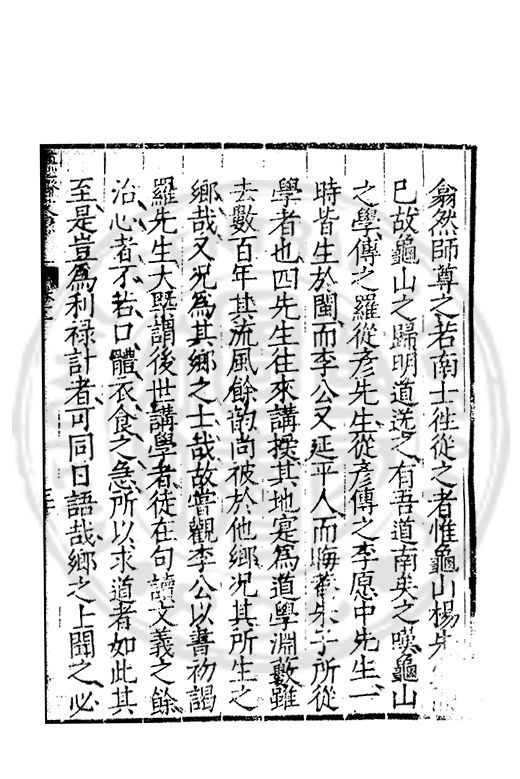 翕然師尊之若南士徃從之者惟龜山楊先
已故龜山之歸明道送之有吾道南矣之嘆龜山
之學傳之羅從彥先生從彥傳之李愿中先生一
時皆生於閩而李公又延平人而晦菴朱子所從
學者也四先生往來講授其地寔為道學淵藪雖
去數百年其流風餘韵尚被於他鄉况其所生之
鄉哉又况為其鄉之士哉故嘗觀李公以書初謁
羅先生大槩謂後世講學者徒在句讀文義之餘
治心者不若口體衣食之急所以求道者如此其
至是豈為利祿計者可同日語哉鄉之上聞之必